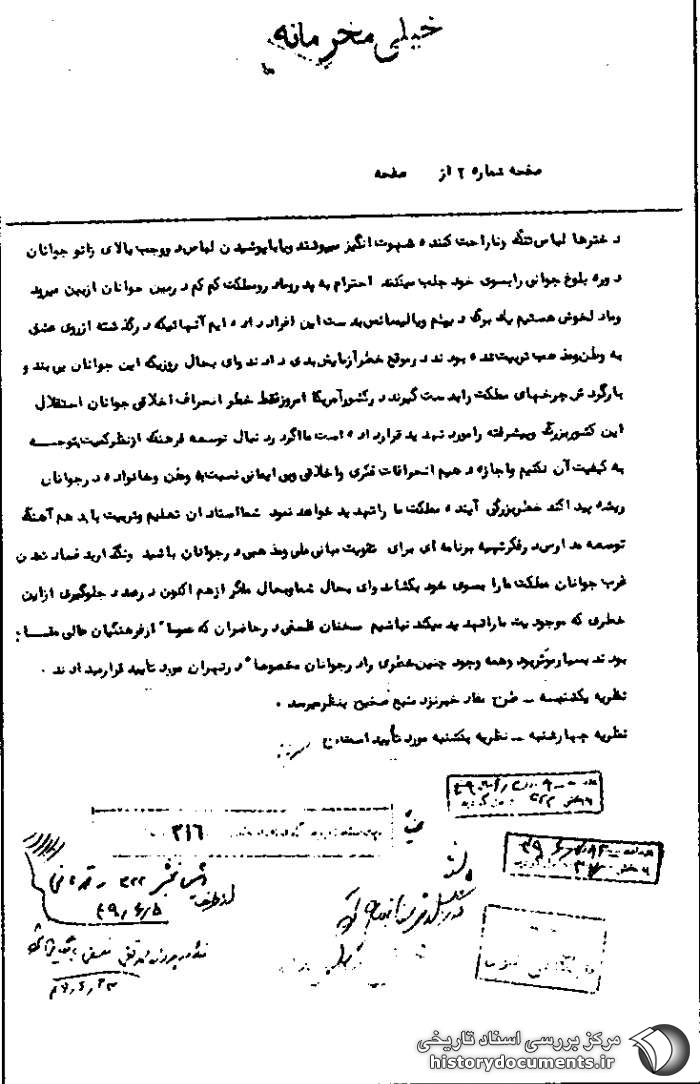 خیلی محرمانه
صفحه شماره ۲ از صفحه
دخترها لباس تنگ و ناراحت کننده شهوت انگیز میپوشند و یا با پوشیدن لباس دو وجب بالای زانو جوانان
دوره بلوغ جوانی را بسوی خود جلب میکنند احترام به پدر و مادر و مملکت کم کم در بین جوانان از بین میرود
و ما دلخوش هستیم یاد بزرگ دیپلم و یا لیسانس بدست این افراد داده ایم آنهائیکه در گذشته از روی عشق
به وطن و مذهب تربیت شده بودند در موقع خطر آزمایش بدی دادند وای بحال روزیکه این جوانان بی بند و
بار گردش چرخهای مملکت را بدست گیرند در کشور آمریکا امروز فقط خطر انحراف اخلاقی جوانان استقلال
این کشور بزرگ و پیشرفته را مورد تهدید قرار داده است ما اگر دنبال توسعه فرهنگ از نظر کمیت بتوجه
به کیفیت آن نکنیم و اجازه دهیم انحرافات فکری و اخلاقی و بی ایمانی نسبت به وطن و خانواده در جوانان
ریشه پیدا کند خطر بزرگی آینده مملکت ما را تهدید خواهد نمود شما استادان تعلیم و تربیت باید هم آهنگ
توسعه مدارس در فکر تهیه برنامه ای برای تقویت مبانی ملی و مذهبی در جوانان باشید و نگذارید فساد تمدن
غرب جوانان مملکت ما را بسوی خود بکشاند وای بحال شما و بحال ما اگر از هم اکنون درصدد جلوگیری از این
خطری که موجودیت ما را تهدید میکند نباشیم سخنان فلسفی در حاضران که عموماً از فرهنگیان عالی مقام
بودند بسیار موثر بود و همه وجود چنین خطری را در جوانان مخصوصاً در تهران مورد تأیید قرار میدادند .
نظریه یکشنبه ــ طرح مفاد خبر نزد منبع صحیح بنظر میرسد .
نظریه چهارشنبه ــ نظریه یکشنبه مورد تأیید است.
۳۱۶
بخش ۳۲۲
۴۹/۶/۵
مرکز بررسی اسناد تاریخی
historydocuments.ir